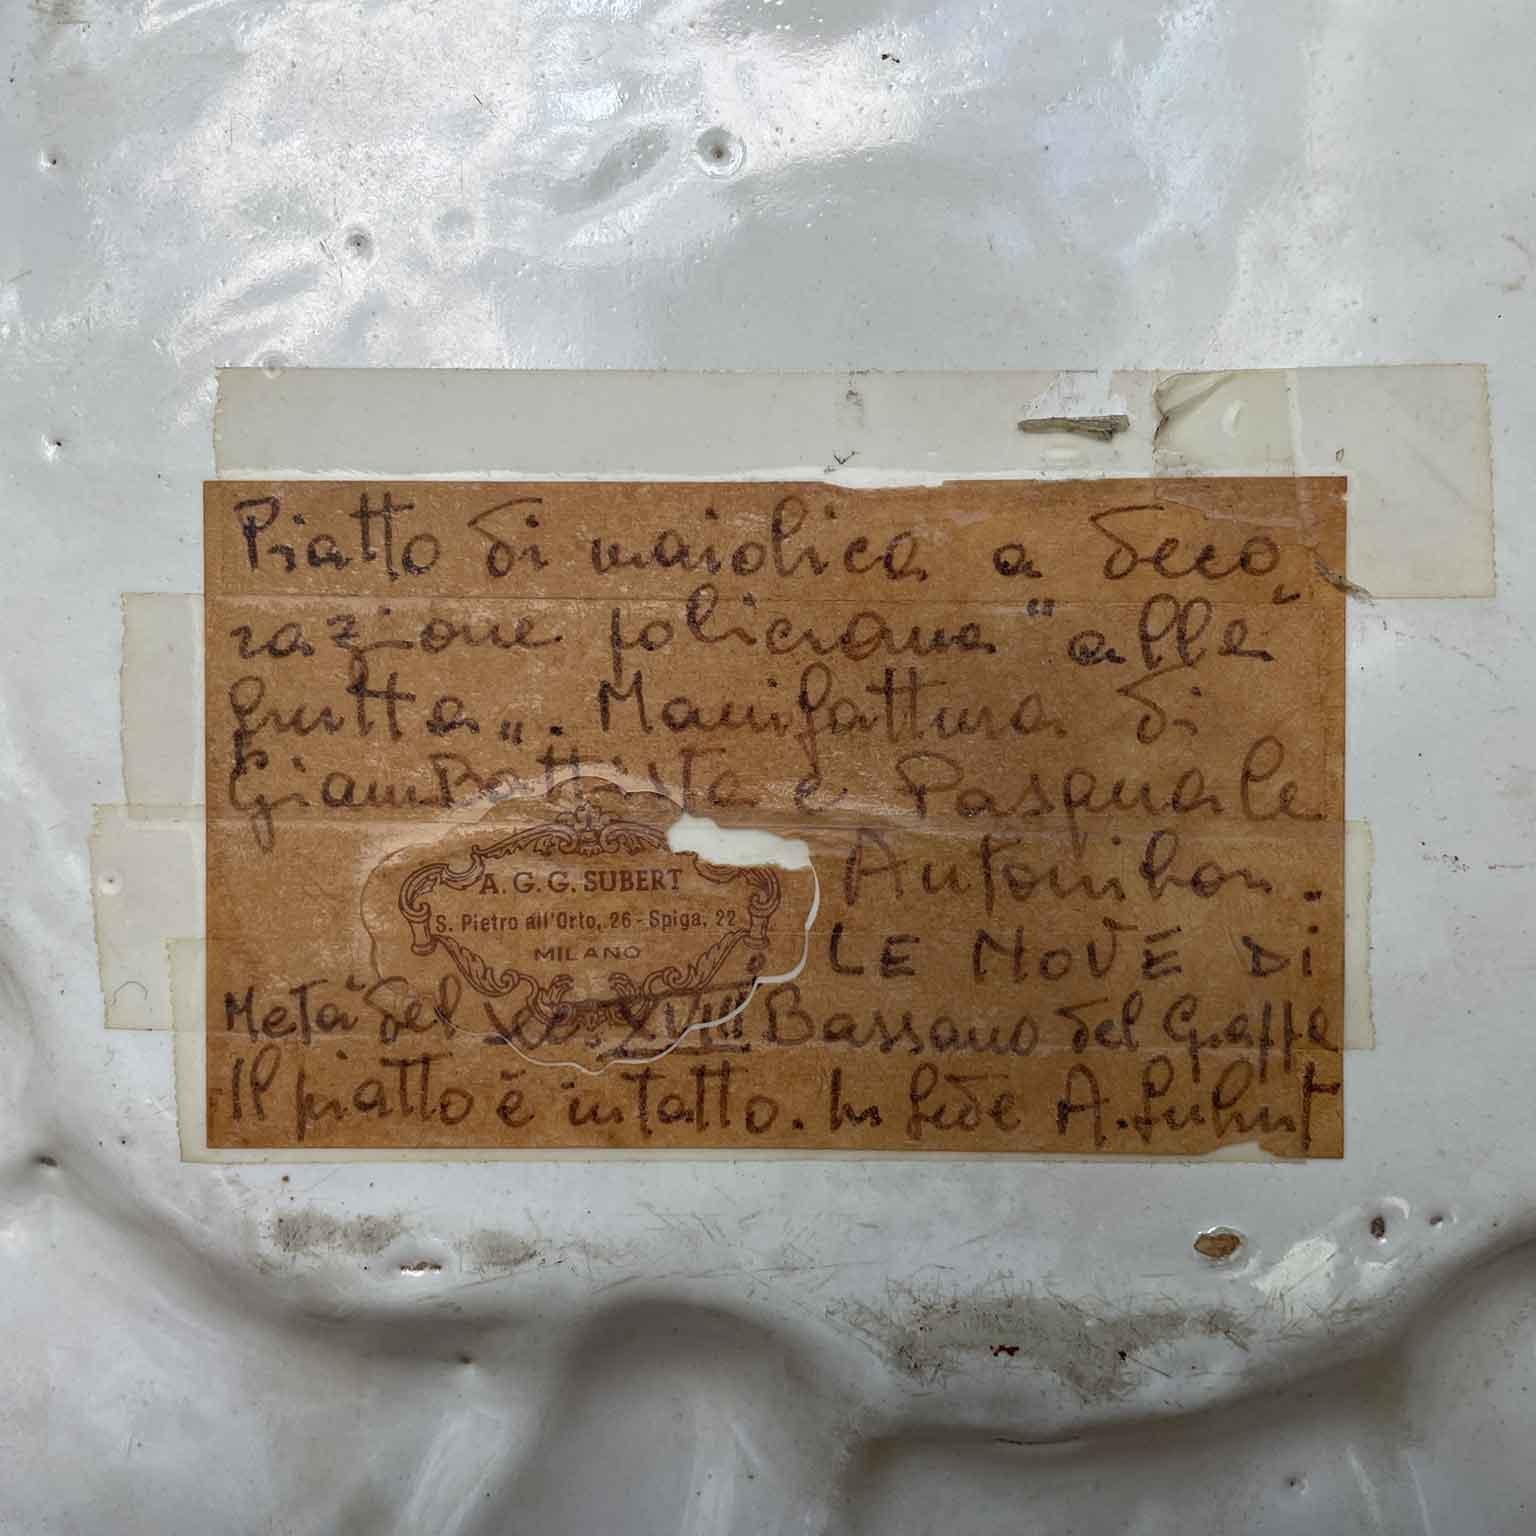 Piatto di maiolica a deco
razione policroma "alla
frutta„. Manifattura di
GiamBattista e Pasquale
Antonibon.
A. G. G. SUBERT
S. Pietro all'Orto, 26 - Spiga, 22
MILANO
LE NOVE DI
Metà del sec. XVIII Bassano del Grappa
Il piatto è intatto. In fede A. Subert